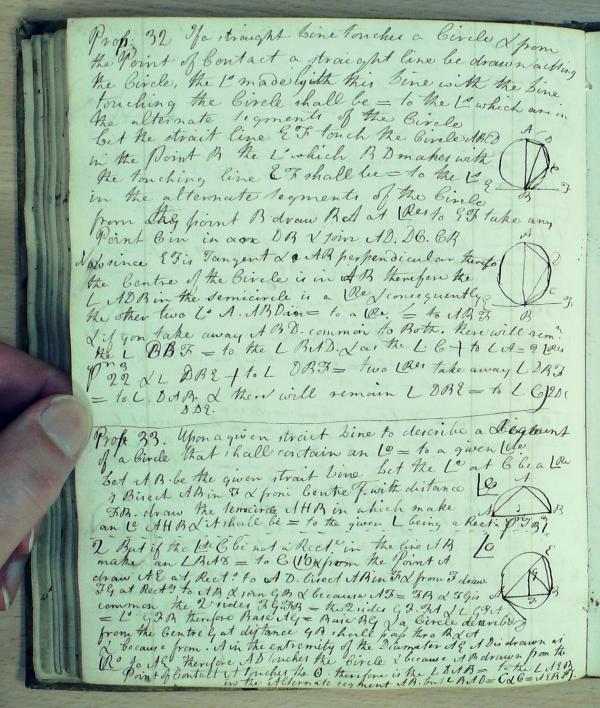 Prop. 32 If a straight Line touches a Circle & from
the Point of Contact a straight line be drawn cutting
the Circle, the Ls made with this Line with the Line
touching the Circle shall be = to the Ls which are in
the alternate segments of the Circle
Let the strait line EF touch the Circle ABCD
in the Point B the L which BD makes with
the touching line EF shall be = to the L
in the alternate segments of the Circle
from the point B draw BA at to EF take any
Point C in in DB & join AD. DC. CB
Now since EF is Tangent & AB perpendicular therefo
the Centre of the Circle is in AB therefore the
L ADB in the semicircle is a & consequently
the other two Ls A. ABD = to a = to ABF
& if you take away ABD. common to Both. there will rem
the L DBF = to the L BAD. & as the L C + to L A = 2
22 & L DBE + to L DBF = two take away L DBF
= to L. DAB. & there will remain L DBE = to L C
DDE.
Prop 33. Upon a given strait Line to describe a Segment
of a Circle that shall contain an L = to a given L
Let AB be the given strait Line Let the L at C be a
Bisect AB in F & from Centre F. with distance
FB. draw the semicircle AHB in which make
an L AHB & it shall be = to the given L being a Rect.
2 But if the L C be not a Rect in the line AB
make an L BAD = to C & from the Point A
draw AE at Rect to AD. bisect AB in F & from F draw
FG at Rect to AB & join GB & because AF = FB & FG is
common the 2 sides FG. FB = the 2 sides G F. FA & L GFA
= L GFB therefore Base AG = Base BG & a Circle describe
from the Centre G at distance GB should pass thro B & A
& because from. A in the extremity of the Diameter AE AD is drawn at
to AE therefore AD touches the Circle & because AB drawn from the
Point of Contact A touches the therefore is the L DAB = to the L AEB
in the alternate segment AB. but BAD = C & C = AEB